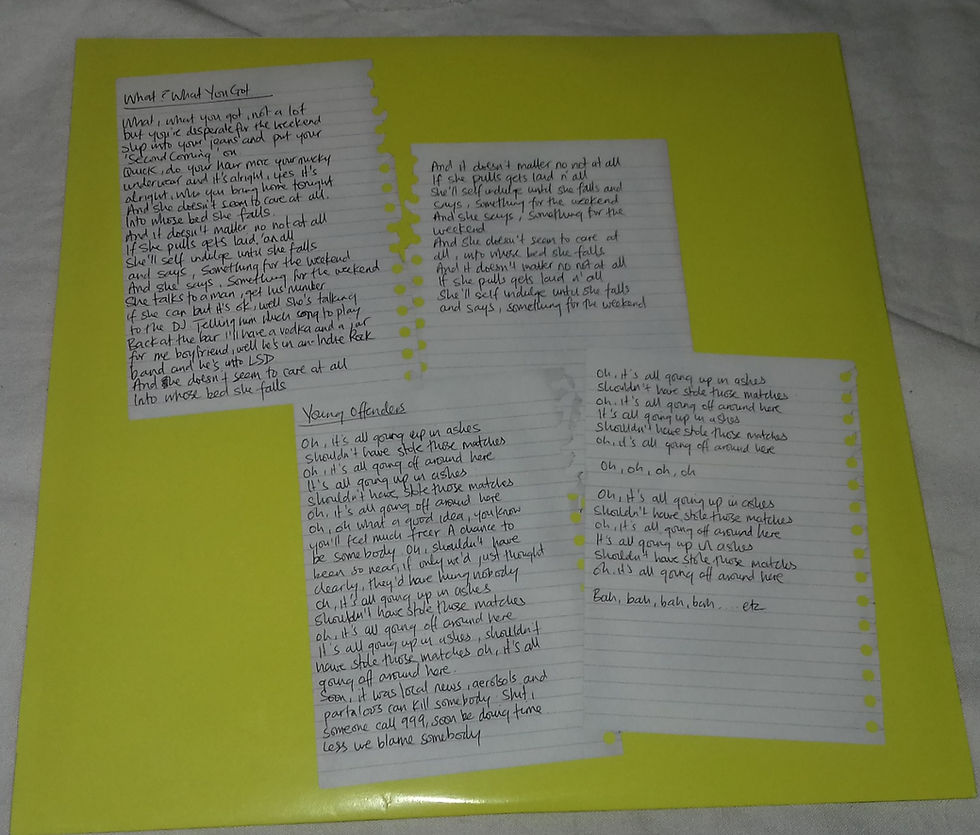 What? What You Got
What, what you got, not a lot
but you're desperate for the weekend
slip into your jeans and put your
'Second Coming' on
Quick, do your hair mac your mucky
underwear and it's alright, yes it's
alright, who you bring home tonight
And she doesn't seem to care at all.
Into whose bed she falls.
And it doesn't matter no not at all
If she pulls gets laid, an all
She'll self indulge until she falls
and says, Something for the weekend
And she says, Something for the weekend
She talks to a man, get his number
if she can but it's ok, well she's talking
to the DJ Telling him which song to play
Back at the bar I'll have a vodka and a jar
for me boyfriend, well he's in an Indie Rock
band and he's into LSD
And she doesn't seem to care at all
Into whose bed she falls
And it doesn't matter no not at all
If she pulls gets laid n' all
She'll self indulge until she falls and
says, Something for the weekend
And she says, Something for the
weekend
And she doesn't seem to care at
all, into whose bed she falls
And it doesn't matter no not at all
If she pulls gets laid n' all
She'll self indulge until she falls
and says, something for the weekend
Young Offenders
Oh, it's all going up in ashes
shouldn't have stole those matches
oh, it's all going off around here
It's all going up in ashes
shouldn't have stole those matches
oh, it's all going off around here
oh, oh what a good idea, you know
you'll feel much freer A chance to
be somebody. Oh, shouldn't have
been so near, if only we'd just thought
clearly, they'd have hung nobody
oh, it's all going up in ashes
shouldn't have stole those matches
oh, it's all going off around here
It's all going up in ashes, shouldn't
have stole those matches oh, it's all
going off around here.
Soon, it was local news, aerosols and
portaloos can kill somebody. Shit,
someone call 999, soon be doing time
less we blame somebody
Oh, it's all going up in ashes
shouldn't have stole those matches
oh, it's all going off around here
It's all going up in ashes
shouldn't have stole those matches
oh, it's all going off around here
Oh, oh, oh, oh
Oh, it's all going up in ashes
Shouldn't have stole those matches
oh, it's all going off around here
It's all going up in ashes
shouldn't have stole those matches
oh, it's all going off around here
Bah, bah, bah, bah.... etc